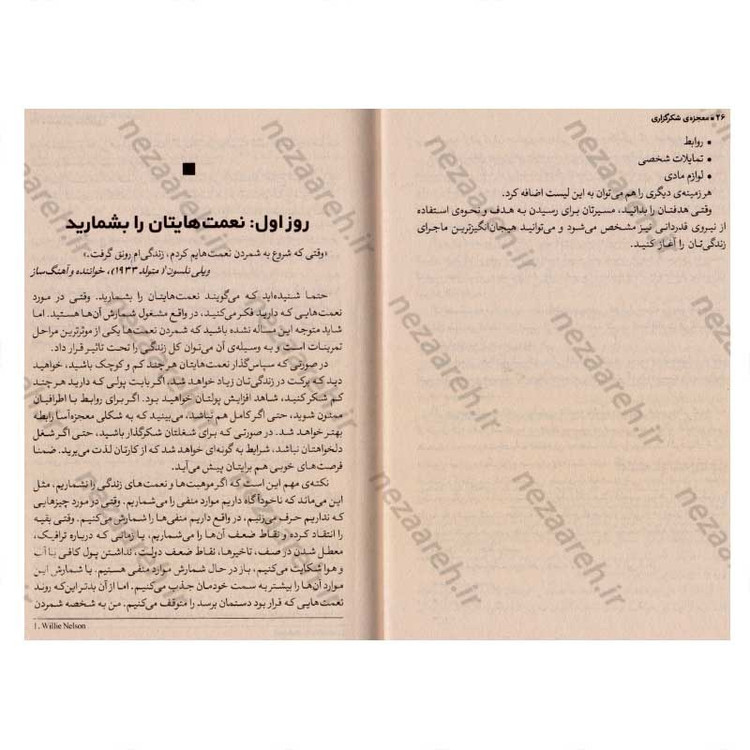 ۲۶ ■ معجزه‌ی شکرگزاری
• روابط
• تمایلات شخصی
• لوازم مادی
هر زمینه‌ی دیگری را هم می‌توان به این لیست اضافه کرد.
وقتی هدفتان را بدانید، مسیرتان برای رسیدن به هدف و نحوه‌ی استفاده
از نیروی قدردانی نیز مشخص می‌شود و می‌توانید هیجان‌انگیزترین ماجرای
زندگی‌تان را آغاز کنید.
روز اول: نعمت‌هایتان را بشمارید
«وقتی که شروع به شمردن نعمت‌هایم کردم، زندگی‌ام رونق گرفت.»
ویلی نلسون۱ (متولد ۱۹۳۳)، خواننده و آهنگ‌ساز
حتما شنیده‌اید که می‌گویند نعمت‌هایتان را بشمارید. وقتی در مورد
نعمت‌هایی که دارید فکر می‌کنید، در واقع مشغول شمارش آن‌ها هستید. اما
شاید متوجه این مساله نشده باشید که شمردن نعمت‌ها یکی از موثرترین مراحل
تمرینات است و به وسیله‌ی آن می‌توان کل زندگی را تحت تاثیر قرار داد.
در صورتی که سپاس‌گذار نعمت‌هایتان هر چند کم و کوچک باشید، خواهید
دید که برکت در زندگی‌تان زیاد خواهد شد. اگر بابت پولی که دارید هر چند
کم شکر کنید، شاهد افزایش پولتان خواهید بود. اگر برای روابط با اطرافیان
ممنون شوید، حتی اگر کامل هم نباشد، می‌بینید که به شکلی معجزه‌آسا رابطه
بهتر خواهد شد. در صورتی که برای شغلتان شکرگذار باشید، حتی اگر شغل
دلخواهتان نباشد، شرایط به گونه‌ای خواهد شد که از کارتان لذت می‌برید. ضمنا
فرصت‌های خوبی هم برایتان پیش می‌آید.
نکته‌ی مهم این است که اگر موهبت‌ها و نعمت‌های زندگی را نشماریم، مثل
این می‌ماند که ناخودآگاه داریم موارد منفی را می‌شماریم. وقتی در مورد چیزهایی
که نداریم حرف می‌زنیم، در واقع داریم منفی‌ها را شمارش می‌کنیم. وقتی بقیه
را انتقاد کرده و نقاط ضعف آن‌ها را می‌شماریم، یا زمانی که درباره ترافیک،
معطل شدن در صف، تاخیرها، نقاط ضعف دولت، نداشتن پول کافی یا آب
و هوا شکایت می‌کنیم، باز در حال شمارش موارد منفی هستیم. با شمارش این
موارد آن‌ها را بیشتر به سمت خودمان جذب می‌کنیم. اما از آن بدتر این‌که روند
نعمت‌هایی که قرار بود دستمان برسد را متوقف می‌کنیم. من به شخصه شمردن
1. Willie Nelson
nezaareh.ir
nezaareh.ir
nezaareh.ir
nezaareh.ir
nezaareh.ir
nezaareh.ir
nezaareh.ir